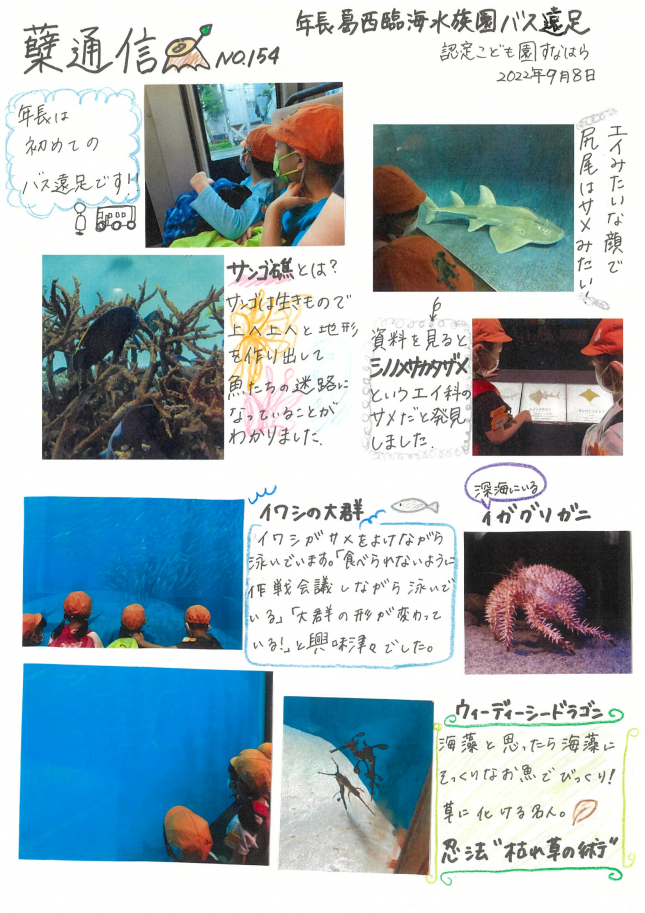 蘖通信 NO.154
年長葛西臨海水族園バス遠足
認定こども園すなはら
2022年9月8日
年長は
初めての
バス遠足です!!
エイみたいな顔で
尻尾はサメみたい
サンゴ礁とは?
サンゴは生きもので
上へ上へと地形
を作り出して
魚たちの迷路に
なっていることが
わかりました。
資料を見ると
シノノメサカタザメ
というエイ科の
サメだと発見
しました。
イワシの大群
イワシがサメをよけながら
泳いでいます。「食べられないように
作戦会議しながら泳いで
いる」「大群の形が変わって
いる!」と興味津々でした。
深海にいる
イガグリガニ
ウィーディーシードラゴン
海藻と思ったら海藻に
そっくりなお魚でびっくり!
草に化ける名人。
忍法"枯れ草の術"